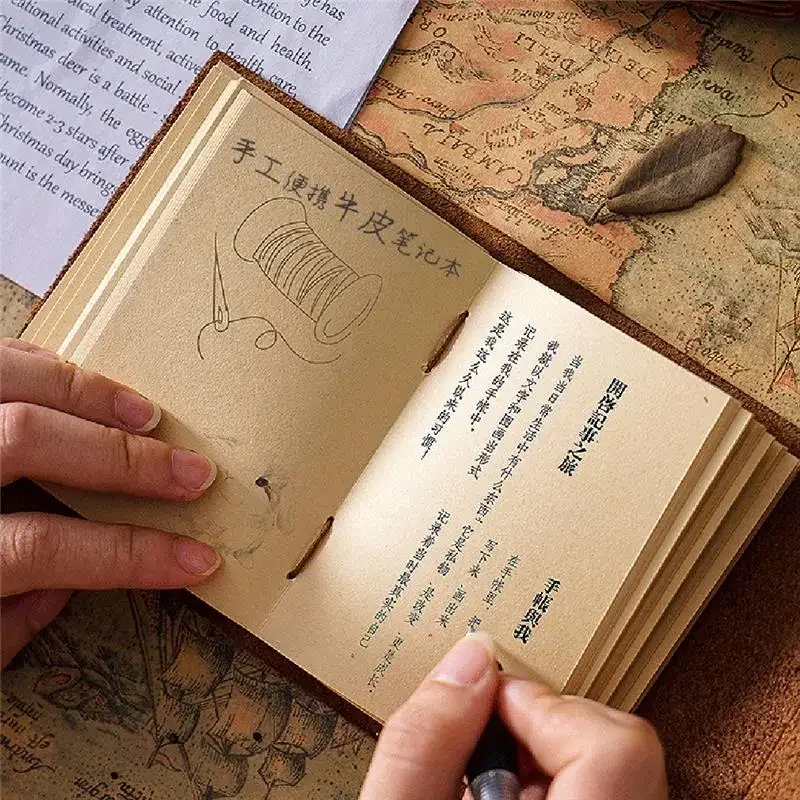 attention to the
food and health.
treatment, attention to health care
cational activities and social
Christmas deer is a battle - s
me. Normally, the egg
become 2-3 stars after
Christmas day bring
ount is the messe
手工便携牛皮笔记本
開啓記事之旅
当我当日常生活中有什么东西，
我就以文字和图画当形式
记录在我的手帐中，
这是我这么久以来的习惯！
手帳與我
在手帐里，把
写下来、画出来
它是私物、是改变、更是成长，
记录着当时最真实的自己
CAMBAIA
DELLI
DECAN